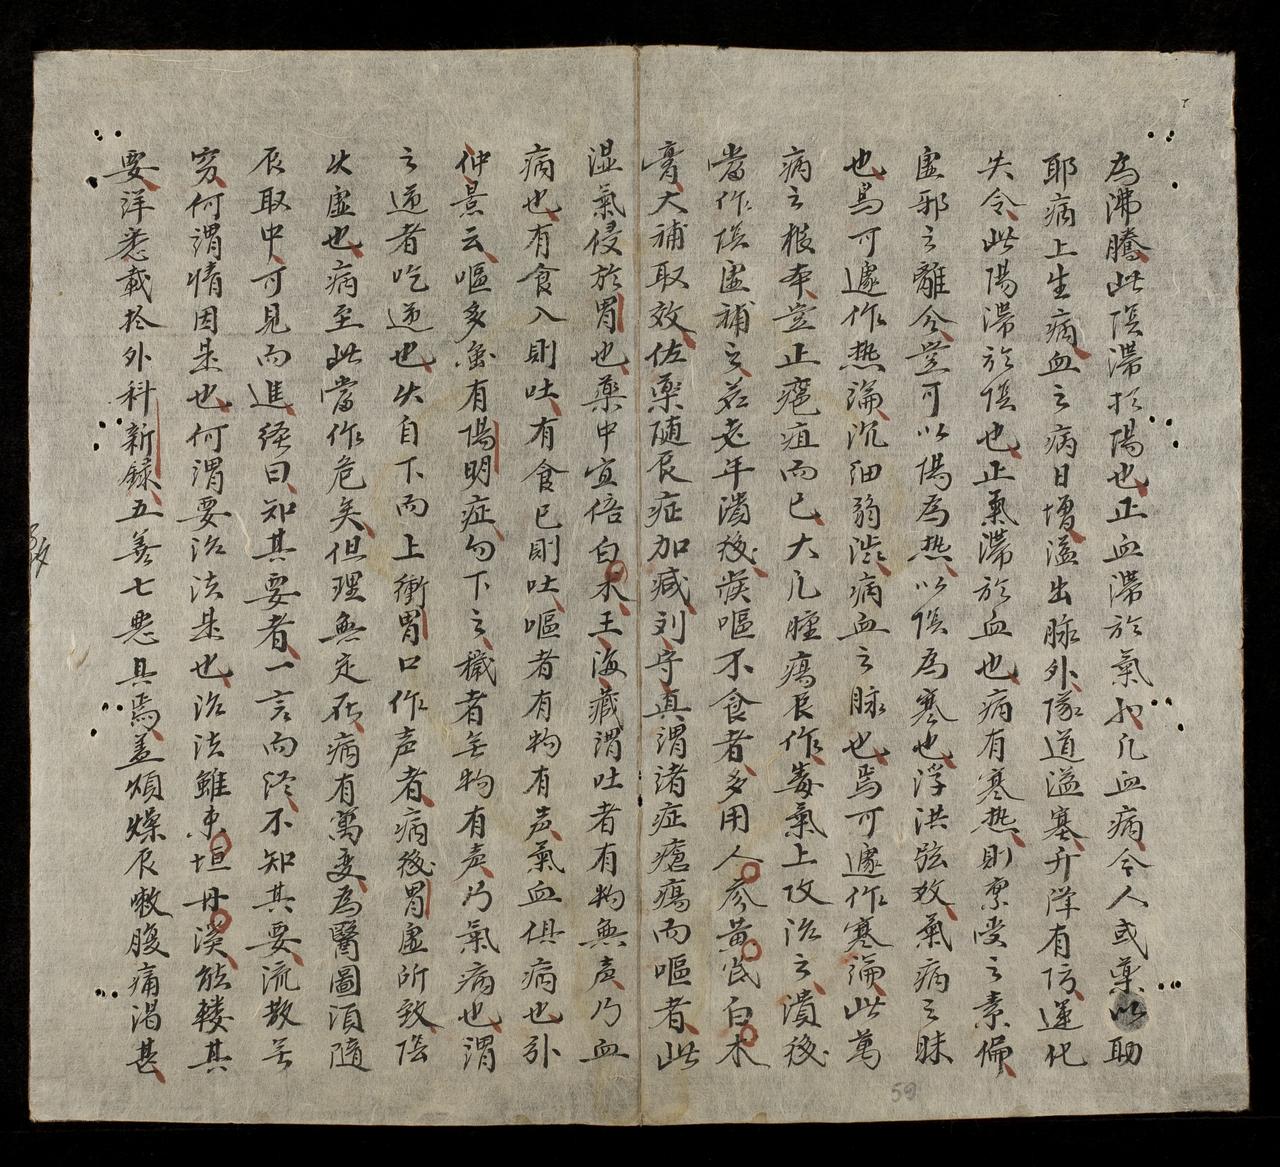 為沸騰此陰滯於陽也正血滯於氣也凡血病令人或藥以助
耶病上生病血之病日增溢出脉外隧道溢塞升降有防運化
失令此陽滯於陰也正氣滯於血也病有寒热則禀受之素偏
虛邪之離合豈可以陽為热以陰為寒也浮洪弦数氣病之脉
也焉可遽作热論沉细弱澁病血之脉也焉可遽作寒論此萬
病之根本豈止瘡疽而已大凡腫瘍旹作毒氣上攻治之潰後
當作陰虛補之若老年潰後發嘔不食者多用人參黃芪白朮
膏大補取效佐藥随旹症加减刘守真謂諸症瘡瘍而嘔者此
湿氣侵於胃也藥中宜倍白朮王海藏謂吐者有物無声乃血
病也有食入則吐有食已則吐嘔者有物有声氣血俱病也引
仲景云嘔多虽有陽明症勿下之噦者無物有声乃氣病也謂
之逆者吃逆也火自下而上衝胃口作声者病後胃虛所致陰
火虛也病至此當作危矣但理無定在病有萬变為醫圖湏隨
旹取中可見而進经曰知其要者一言而终不知其要流散無
穷何謂情因是也何謂要治法是也治法雖東垣丹溪能轃其
要详悉載於外科新録五善七惡具焉盖煩燥旹嗽腹痛渴甚
59